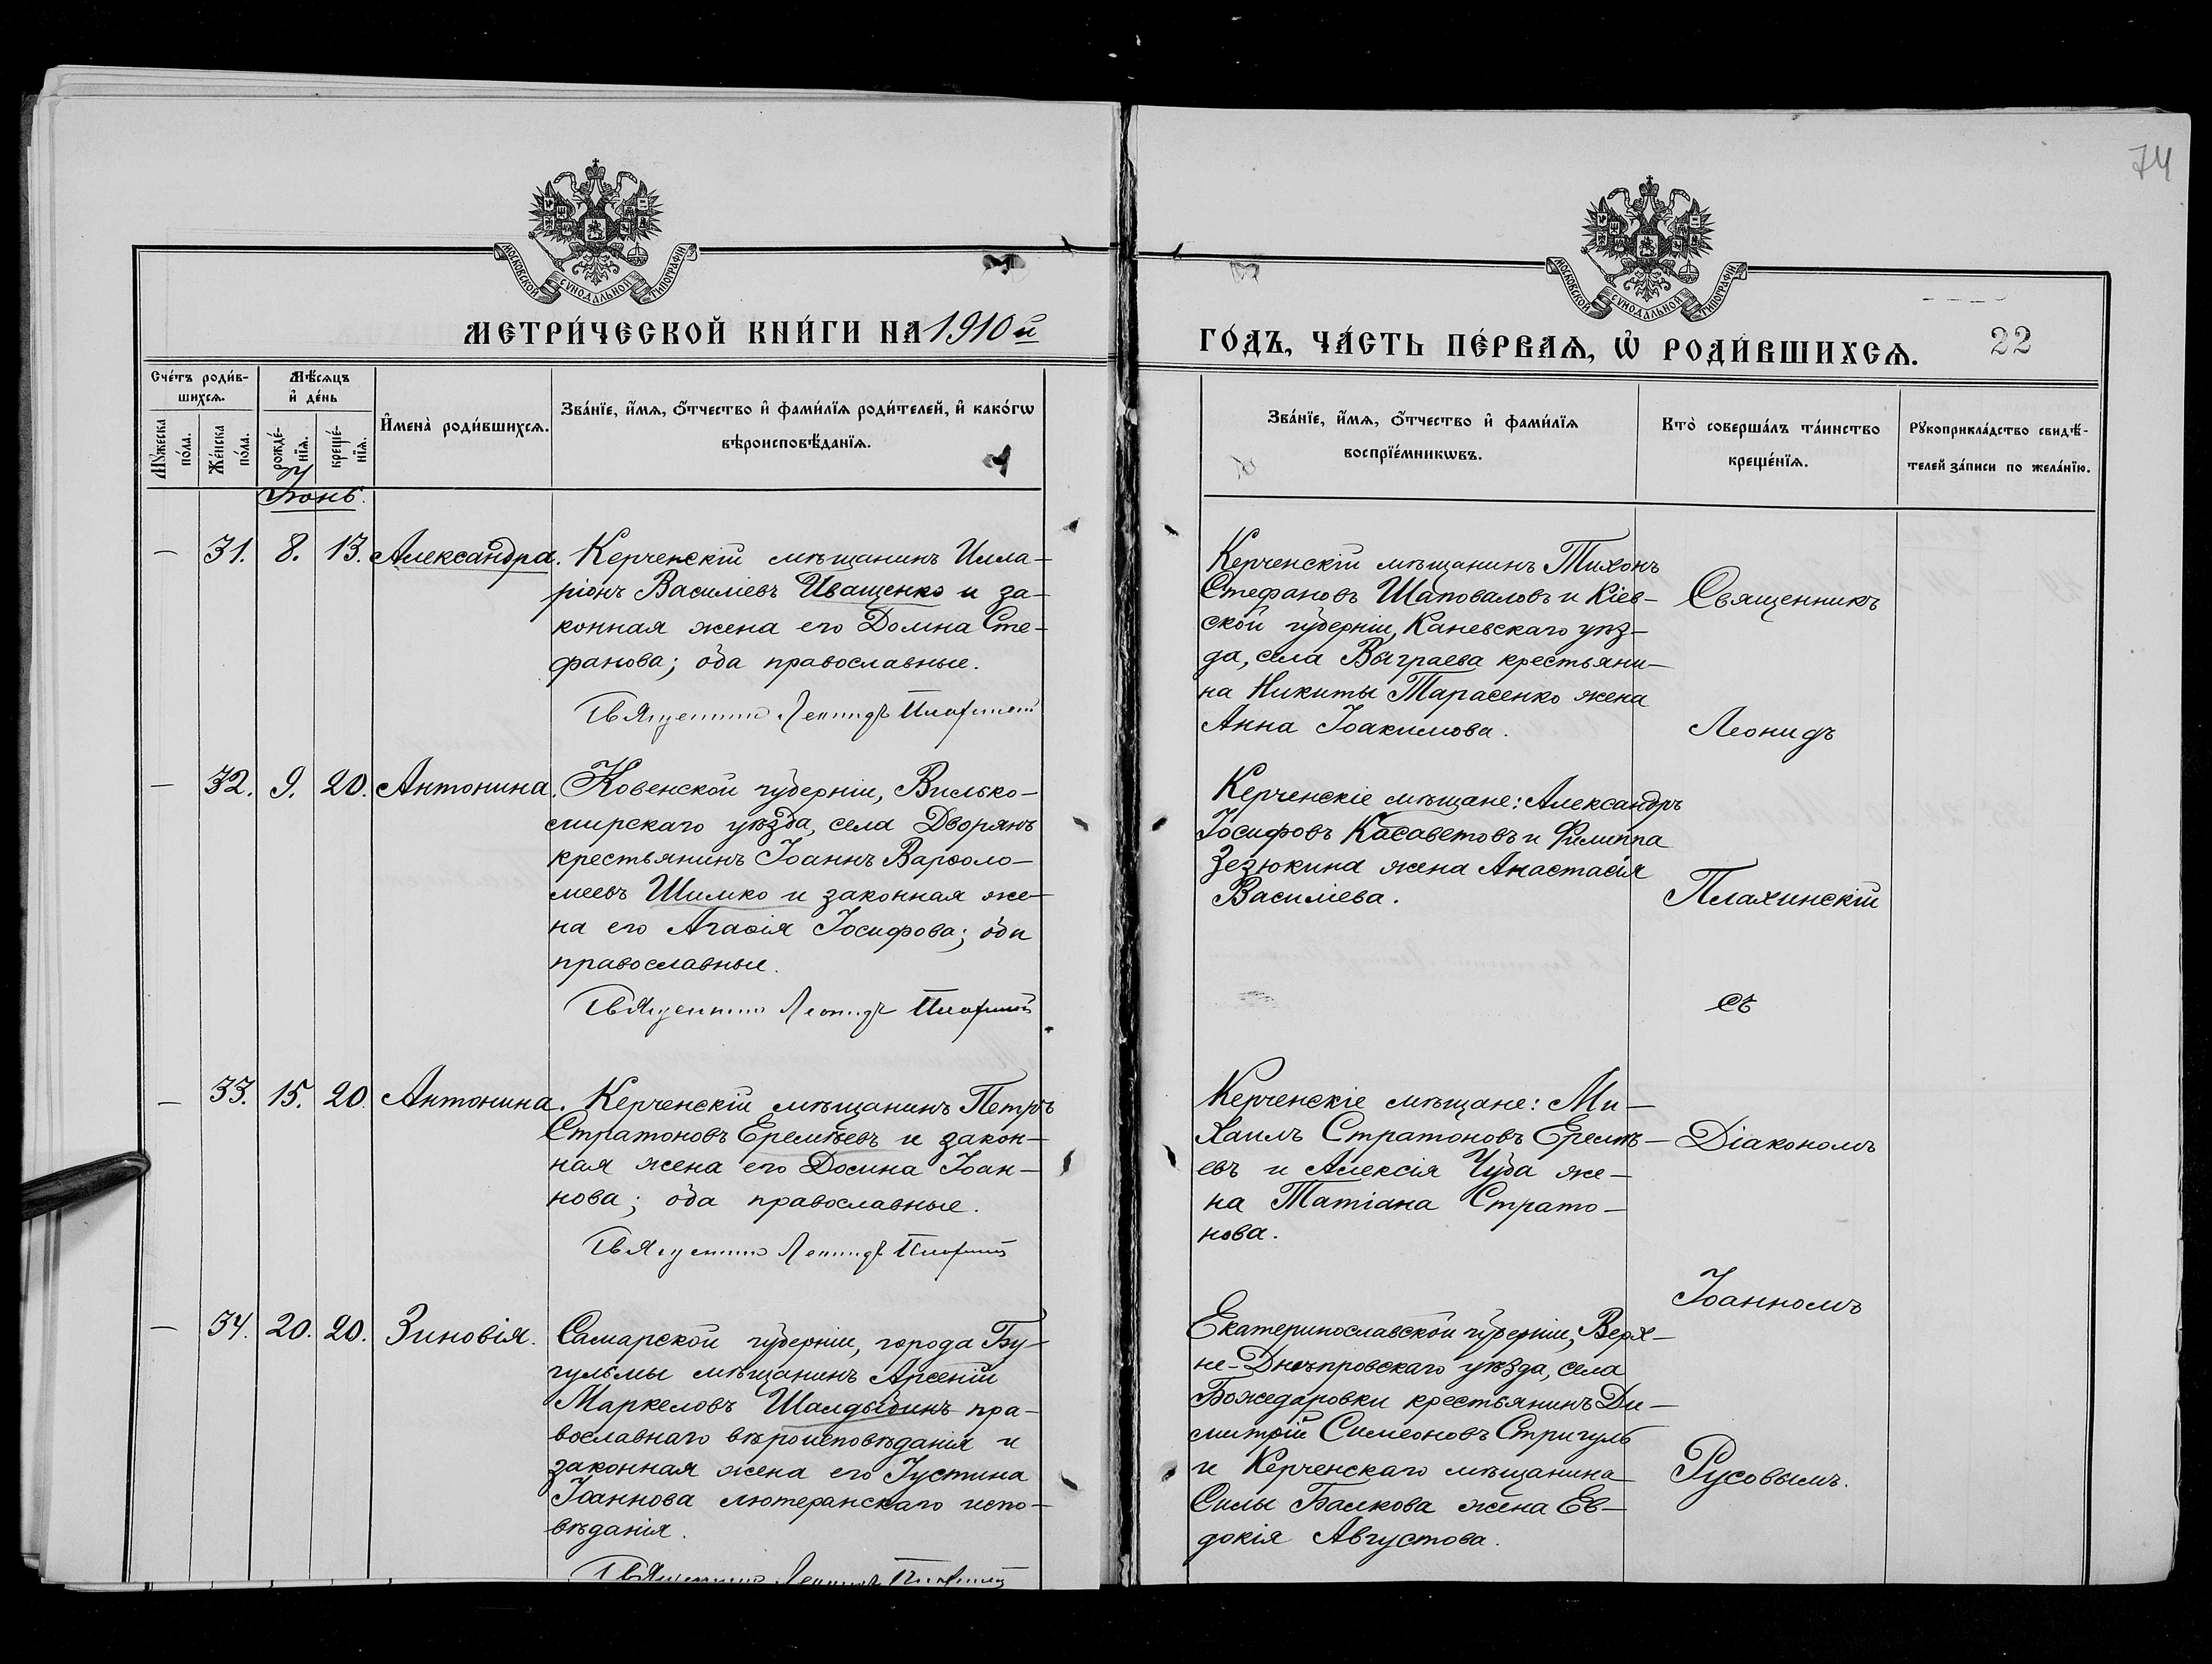 74
МОСКОВСКОЙ СѴНОДАЛЬНОЙ ТИПОГРАФІИ
МОСКОВСКОЙ СѴНОДАЛЬНОЙ ТИПОГРАФІИ
МЕТРИ́ЧЕСКОЙ КНИ́ГИ НА 1910 й
ГО́ДЪ, ЧА́СТЬ ПЕ́РВАѦ, Ѡ҆ РОДИ́ВШИХСѦ. 22
Сче́тъ роди́в-
шихсѧ.
Мꙋ́жеска по́ла.
Же́нска по́ла.
Мѣ́сѧцъ
и҆ де́нь
рожде́-
нїѧ.
креще́-
нїѧ.
И҆мена̀ роди́вшихсѧ.
Зва́нїе, и҆́мѧ, ѻ҆́тчество и҆ фами́лїѧ роди́телей, и҆ како́гѡ
вѣроисповѣ́данїѧ.
Зва́нїе, и҆́мѧ, ѻ҆́тчество и҆ фами́лїѧ
воспрїе́мникѡвъ.
Кто̀ соверша́лъ та́инство
креще́нїѧ.
Рꙋкоприкла́дство свидѣ́-
телей за́писи по жела́нїю.
Іюнь.
— 31. 8. 13. Александра.
Керченскій мѣщанинъ Илла-
ріонъ Василіевъ Иващенко и за-
конная жена его Домна Сте-
фанова; оба православные.
Священникъ Леонидъ Плахинскій
Керченскій мѣщанинъ Тихонъ
Стефановъ Шаповаловъ и Кіев-
ской губерніи, Каневскаго уѣз-
да, села Выграева крестьяни-
на Никиты Тарасенко жена
Анна Іоакимова.
Священникъ
Леонидъ
— 32. 9. 20. Антонина.
Ковенской губерніи, Вилько-
мирскаго уѣзда, села Дворянъ
крестьянинъ Іоаннъ Варѳоло-
меевъ Шимко и законная же-
на его Агаѳія Іосифова; оба
православные.
Священникъ Леонидъ Плахинскій
Керченскіе мѣщане: Александръ
Іосифовъ Касаветовъ и Филиппа
Зезюкина жена Анастасія
Василіева.
Плахинскій
съ
— 33. 15. 20. Антонина.
Керченскій мѣщанинъ Петръ
Стратоновъ Еремѣевъ и закон-
ная жена его Домна Іоан-
нова; оба православные.
Священникъ Леонидъ Плахинскій
Керченскіе мѣщане: Ми-
хаилъ Стратоновъ Еремѣ-
евъ и Алексія Чуба же-
на Татіана Страто-
нова.
Діакономъ
Іоанномъ
— 34. 20. 20. Зиновія.
Самарской губерніи, города Бу-
гульмы мѣщанинъ Арсеній
Маркеловъ Шалдыбинъ пра-
вославнаго вѣроисповѣданія и
законная жена его Іустина
Іоаннова лютеранскаго испо-
вѣданія.
Священникъ Леонидъ Плахинскій
Екатеринославской губерніи, Верх-
не-Днѣпровскаго уѣзда, села
Божедаровки крестьянинъ Ди-
митрій Симеоновъ Стригуль
и Керченскаго мѣщанина
Силы Балкова жена Ев-
докія Августова.
Русовымъ.